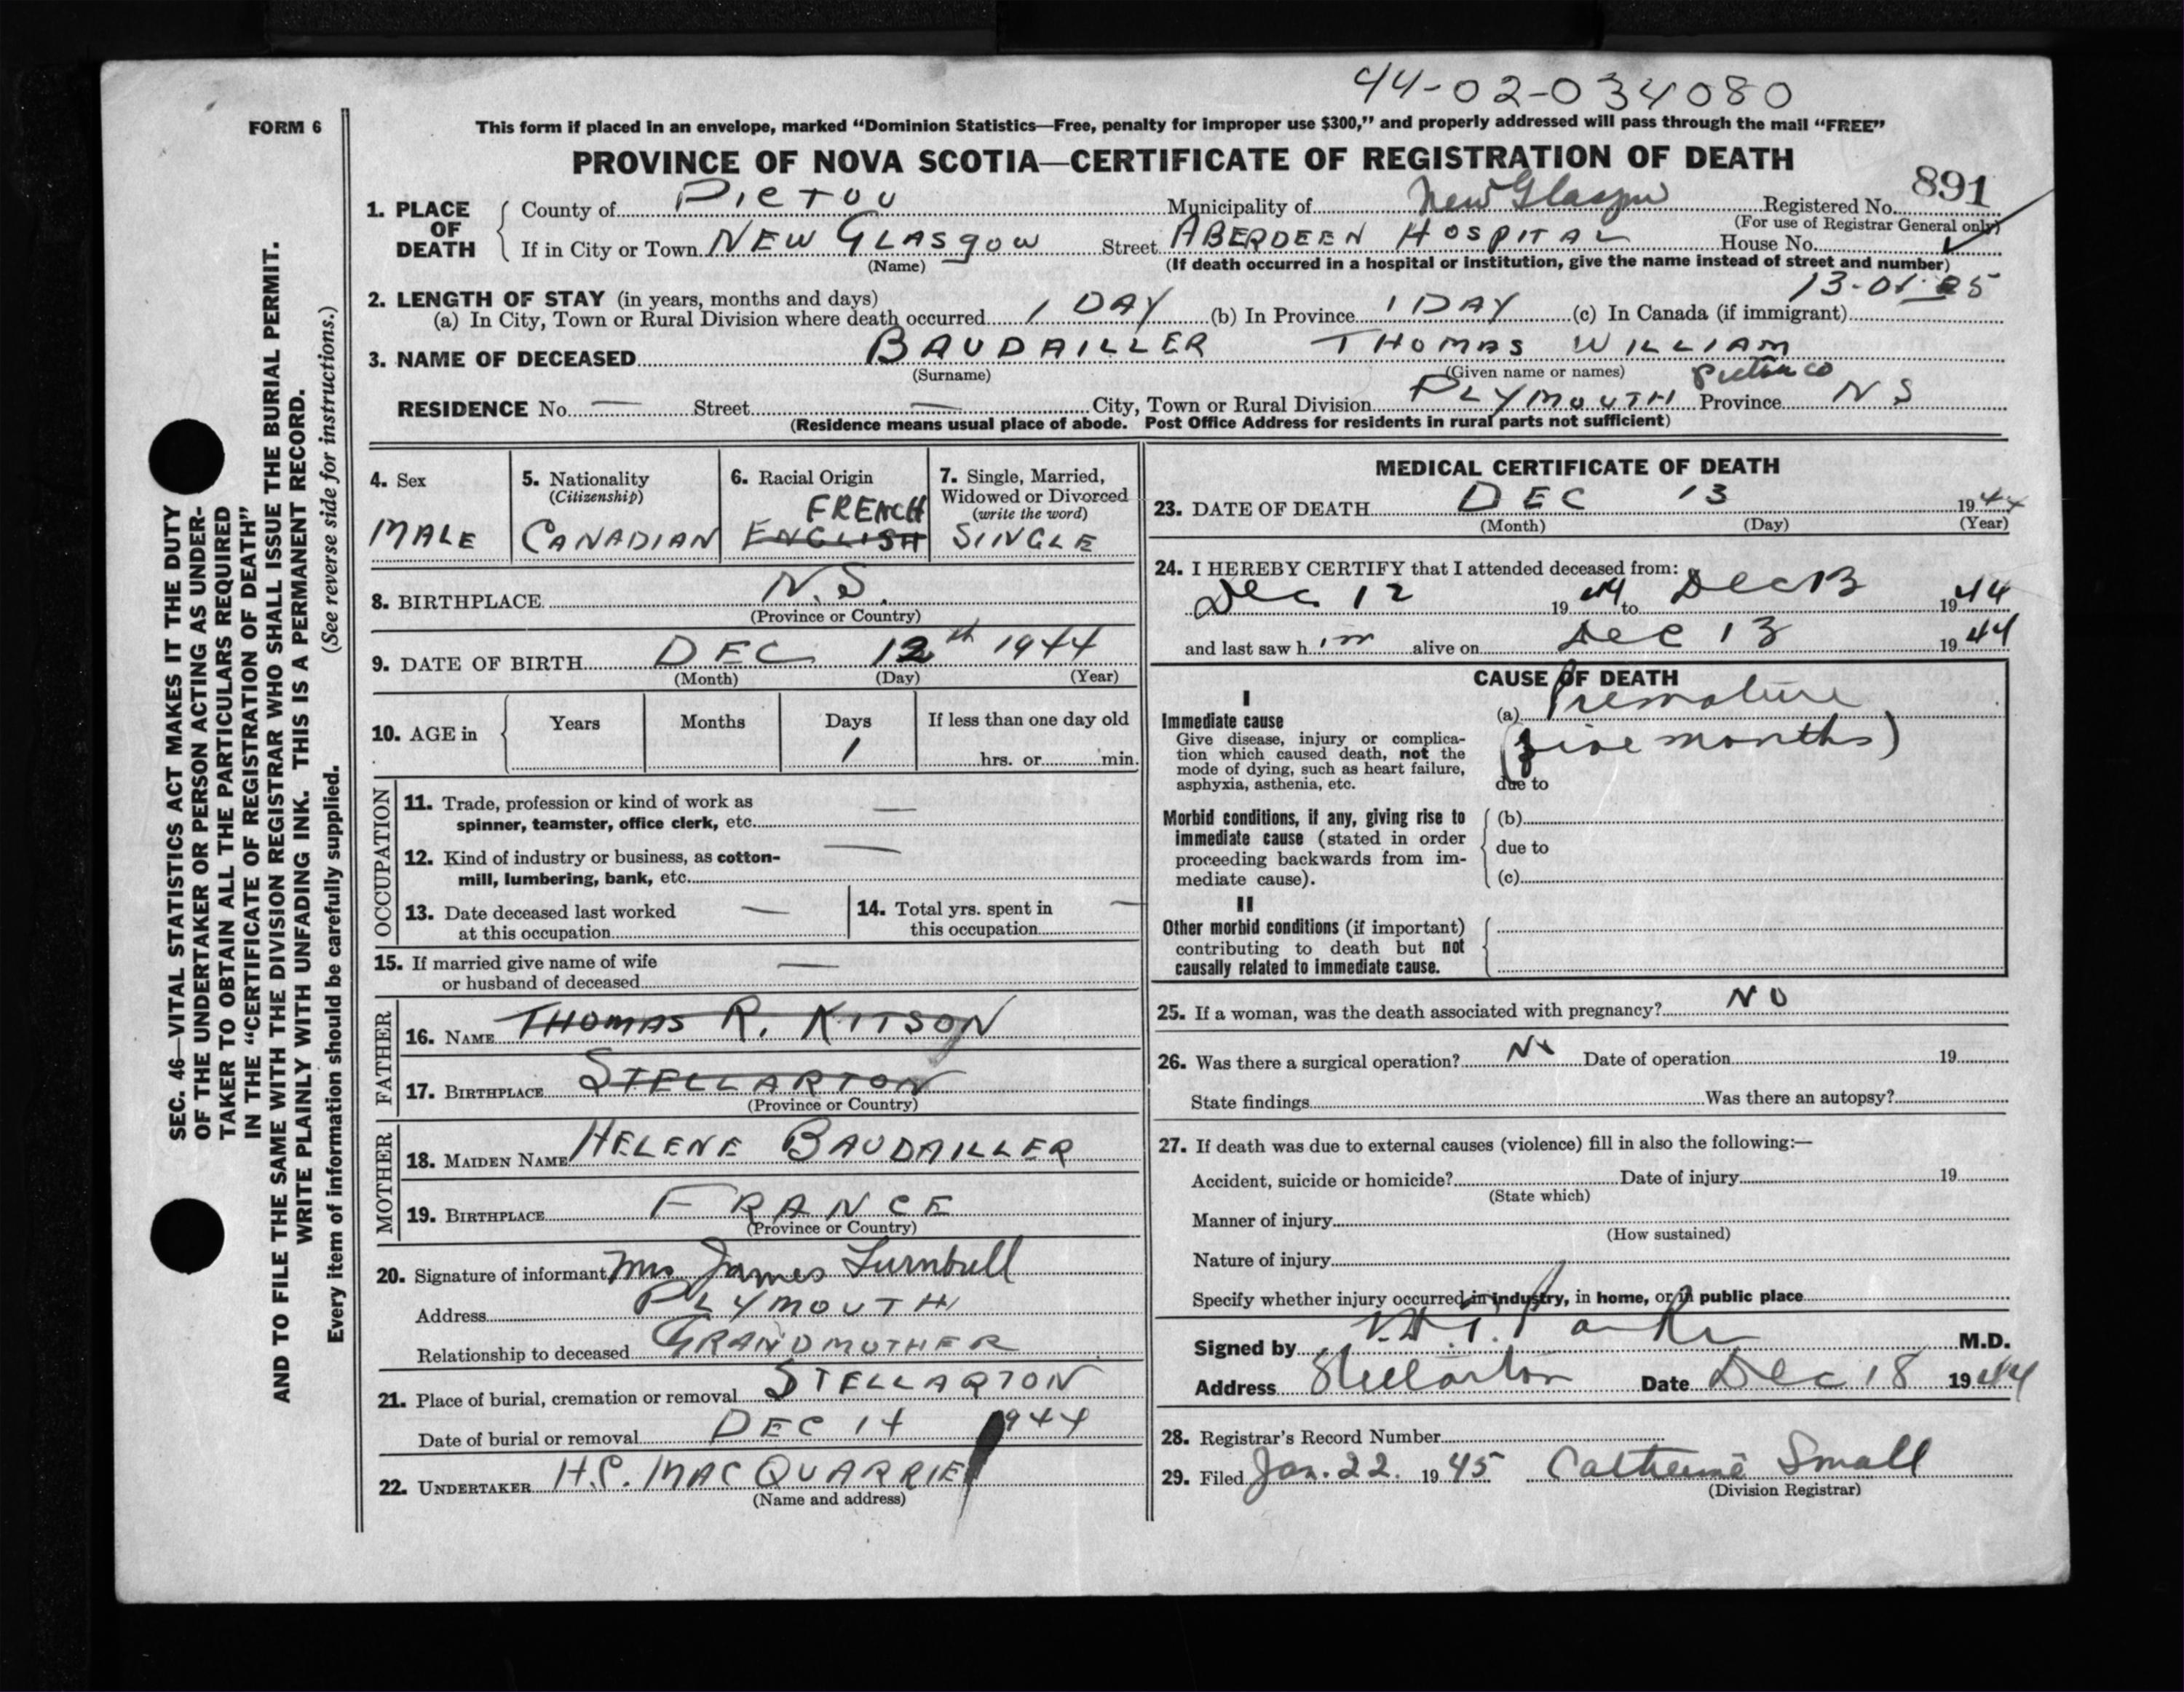 44-02-034080
FORM 6
This form if placed in an envelope, marked “Dominion Statistics—Free, penalty for improper use $300,” and properly addressed will pass through the mail “FREE”
PROVINCE OF NOVA SCOTIA—CERTIFICATE OF REGISTRATION OF DEATH
891
1. PLACE OF DEATH
County of PICTOU Municipality of New Glasgow Registered No.
(For use of Registrar General only)
If in City or Town NEW GLASGOW Street ABERDEEN HOSPITAL House No.
(Name) (If death occurred in a hospital or institution, give the name instead of street and number)
13-01-25
2. LENGTH OF STAY (in years, months and days)
(a) In City, Town or Rural Division where death occurred 1 DAY (b) In Province 1 DAY (c) In Canada (if immigrant)
3. NAME OF DECEASED BAUDAILLER THOMAS WILLIAM
(Surname) (Given name or names)
Pictou Co
RESIDENCE No. — Street — City, Town or Rural Division PLYMOUTH Province N S
(Residence means usual place of abode. Post Office Address for residents in rural parts not sufficient)
4. Sex
MALE
5. Nationality
(Citizenship)
CANADIAN
6. Racial Origin
FRENCH
ENGLISH
7. Single, Married,
Widowed or Divorced
(write the word)
SINGLE
8. BIRTHPLACE N.S.
(Province or Country)
9. DATE OF BIRTH DEC 12th 1944
(Month) (Day) (Year)
10. AGE in
Years Months Days If less than one day old
1 hrs. or min.
OCCUPATION
11. Trade, profession or kind of work as —
spinner, teamster, office clerk, etc.
12. Kind of industry or business, as cotton- —
mill, lumbering, bank, etc.
13. Date deceased last worked —
at this occupation
14. Total yrs. spent in —
this occupation
15. If married give name of wife —
or husband of deceased
FATHER
16. NAME THOMAS R. KITSON
17. BIRTHPLACE STELLARTON
(Province or Country)
MOTHER
18. MAIDEN NAME HELENE BAUDAILLER
19. BIRTHPLACE FRANCE
(Province or Country)
20. Signature of informant Mrs James Turnbull
Address PLYMOUTH
Relationship to deceased GRANDMOTHER
21. Place of burial, cremation or removal STELLARTON
Date of burial or removal DEC 14 1944
22. UNDERTAKER H.P. MACQUARRIE
(Name and address)
MEDICAL CERTIFICATE OF DEATH
23. DATE OF DEATH DEC 13 1944
(Month) (Day) (Year)
24. I HEREBY CERTIFY that I attended deceased from:
Dec 12 1944 to Dec 13 1944
and last saw him alive on Dec 13 1944
CAUSE OF DEATH
I
Immediate cause
Give disease, injury or complica-
tion which caused death, not the
mode of dying, such as heart failure,
asphyxia, asthenia, etc.
(a) Premature
(five months)
due to
Morbid conditions, if any, giving rise to
immediate cause (stated in order
proceeding backwards from im-
mediate cause).
(b)
due to
(c)
II
Other morbid conditions (if important)
contributing to death but not
causally related to immediate cause.
25. If a woman, was the death associated with pregnancy? NO
26. Was there a surgical operation? No Date of operation 19
State findings Was there an autopsy?
27. If death was due to external causes (violence) fill in also the following:—
Accident, suicide or homicide? Date of injury 19
(State which)
Manner of injury
(How sustained)
Nature of injury
Specify whether injury occurred in industry, in home, or in public place
Signed by M.D.
Address Stellarton Date Dec 18 1944
28. Registrar's Record Number
29. Filed Jan. 22. 1945 Catherine Small
(Division Registrar)
SEC. 46—VITAL STATISTICS ACT MAKES IT THE DUTY
OF THE UNDERTAKER OR PERSON ACTING AS UNDER-
TAKER TO OBTAIN ALL THE PARTICULARS REQUIRED
IN THE “CERTIFICATE OF REGISTRATION OF DEATH”
AND TO FILE THE SAME WITH THE DIVISION REGISTRAR WHO SHALL ISSUE THE BURIAL PERMIT.
WRITE PLAINLY WITH UNFADING INK. THIS IS A PERMANENT RECORD.
Every item of information should be carefully supplied. (See reverse side for instructions.)